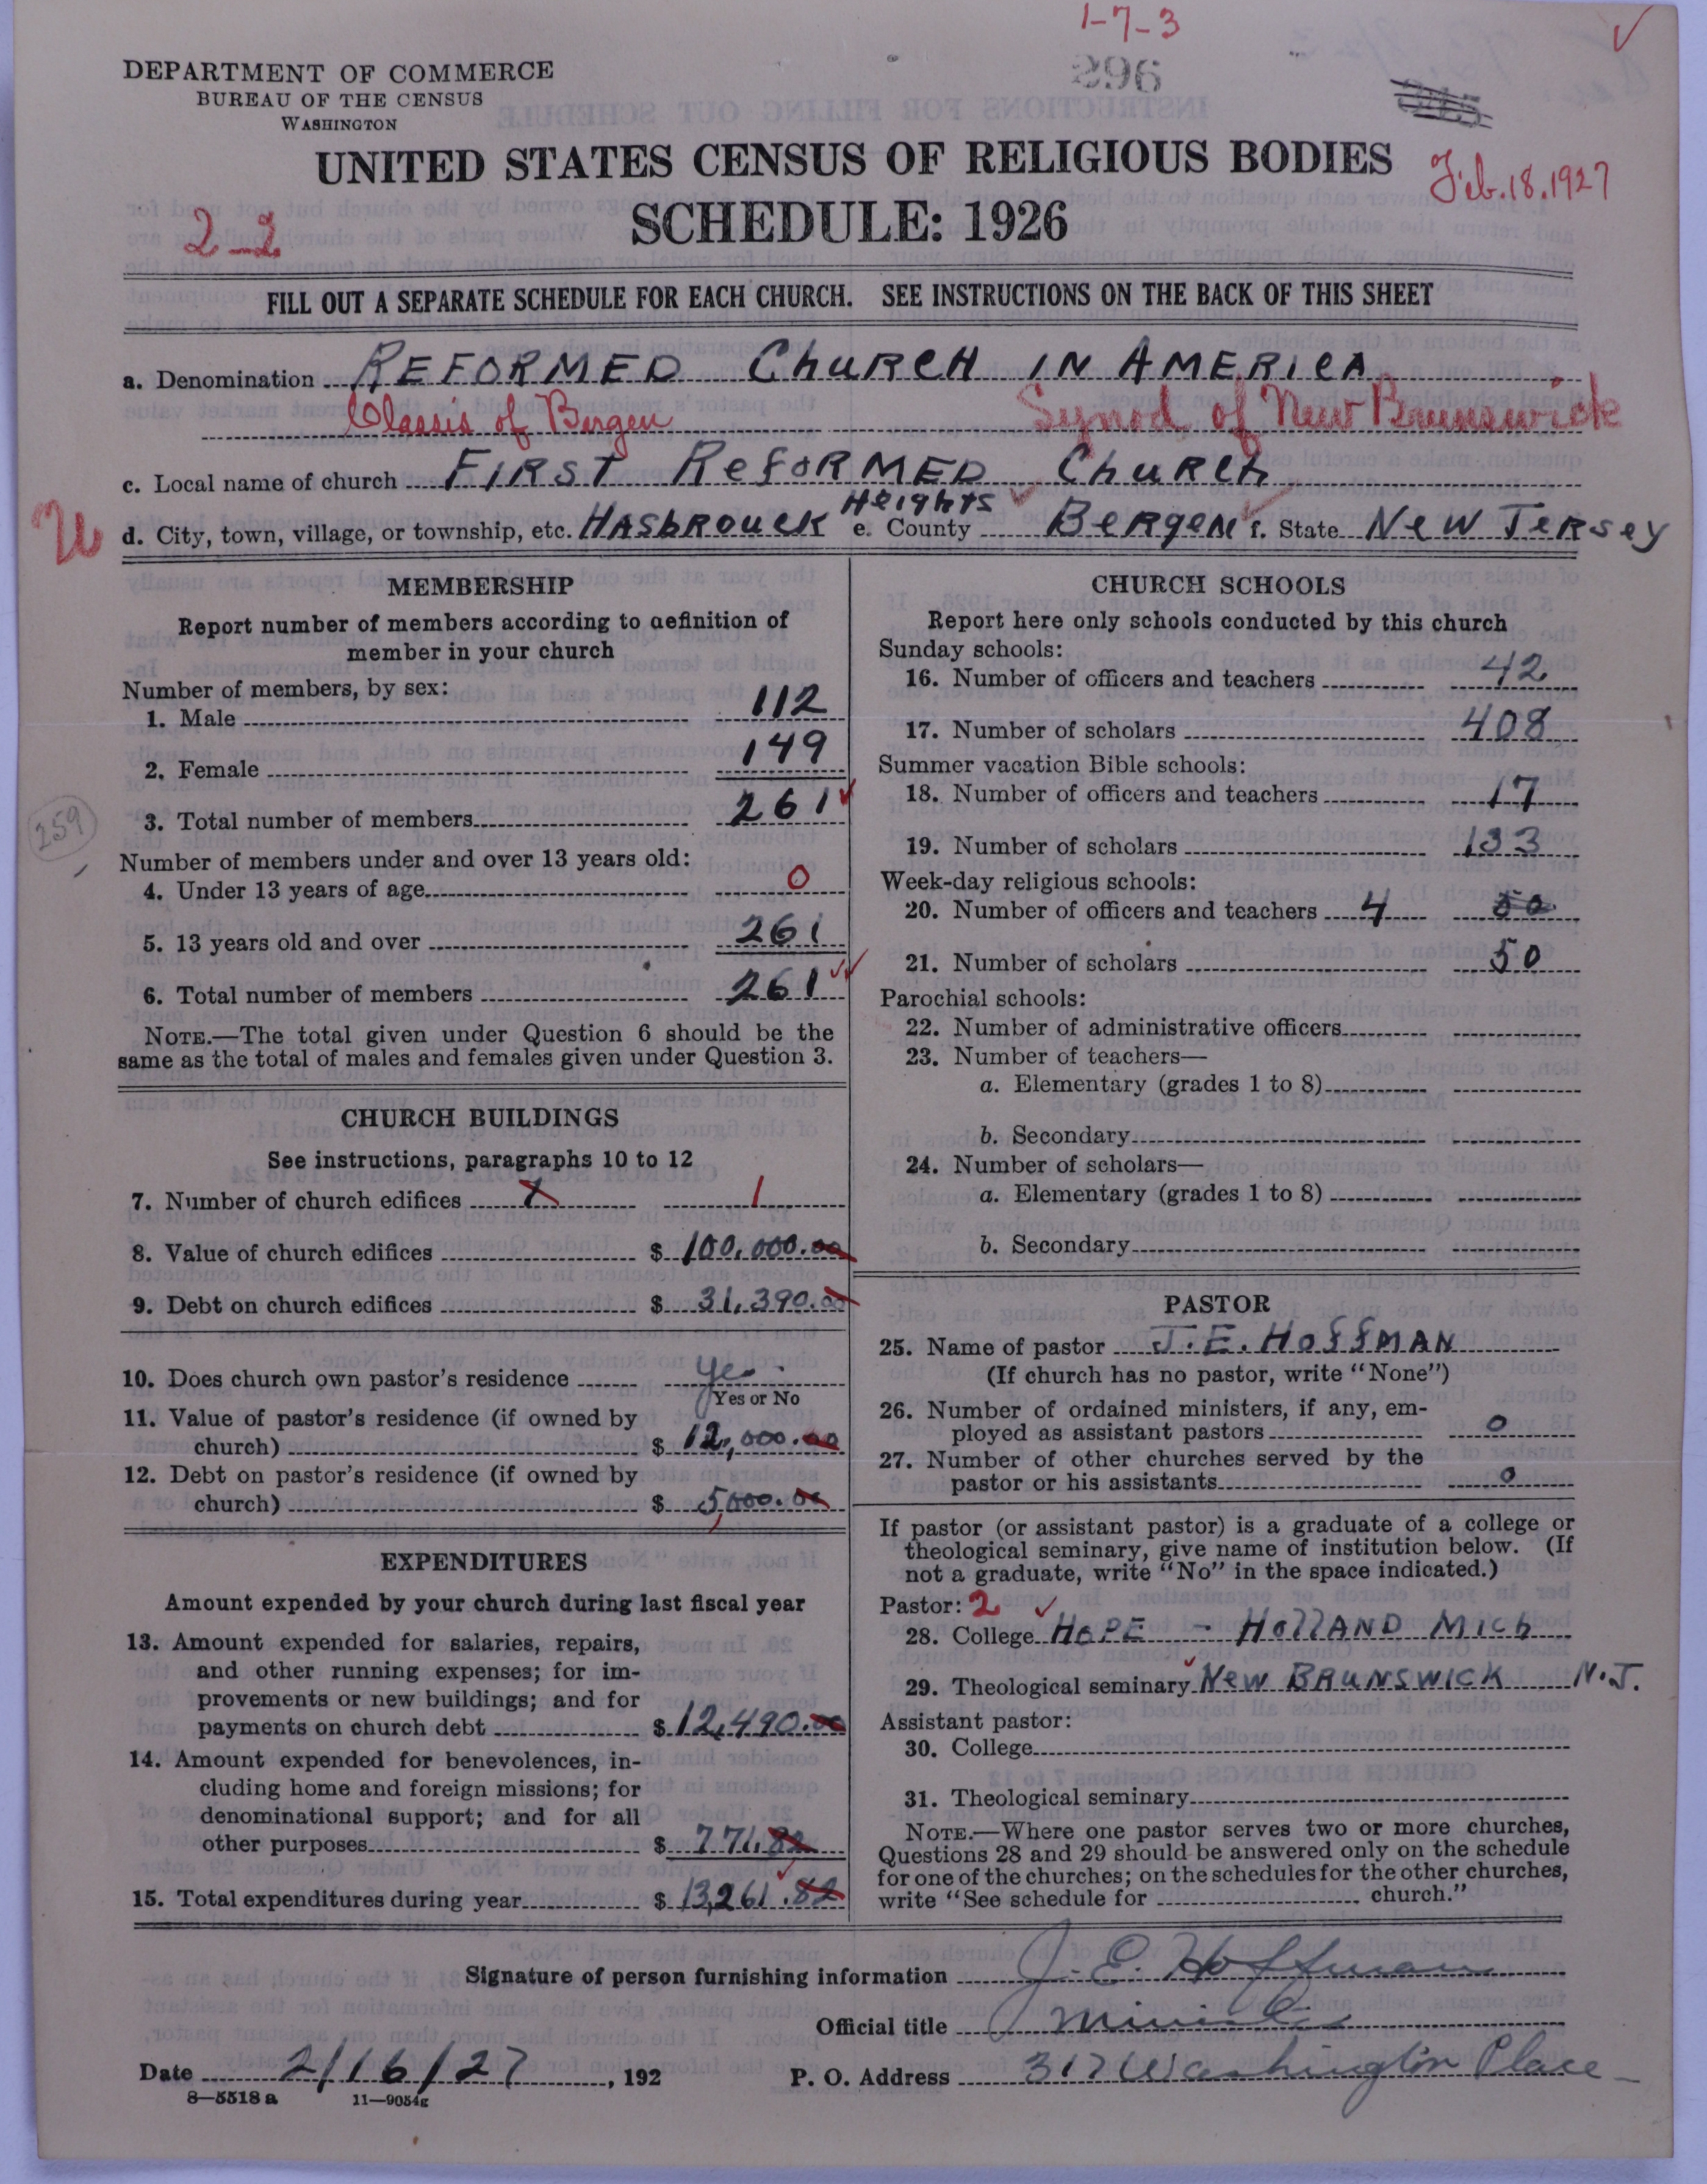 1-7-3
296
DEPARTMENT OF COMMERCE
BUREAU OF THE CENSUS
WASHINGTON
UNITED STATES CENSUS OF RELIGIOUS BODIES
Feb. 18. 1927
SCHEDULE: 1926
2-2
FILL OUT A SEPARATE SCHEDULE FOR EACH CHURCH. SEE INSTRUCTIONS ON THE BACK OF THIS SHEET
a. Denomination REFORMED ChURCH IN AMERICA
Classis of Bergen Synod of New Brunswick
c. Local name of church FIRST ReFORMED ChURCh
d. City, town, village, or township, etc. HASbROUCK Heights e. County BeRgeN f. State New JeRsey
MEMBERSHIP
Report number of members according to definition of
member in your church
Number of members, by sex:
1. Male 112
2. Female 149
3. Total number of members 261
259
Number of members under and over 13 years old:
4. Under 13 years of age 0
5. 13 years old and over 261
6. Total number of members 261
NOTE.—The total given under Question 6 should be the
same as the total of males and females given under Question 3.
CHURCH BUILDINGS
See instructions, paragraphs 10 to 12
7. Number of church edifices 1 1
8. Value of church edifices $ 100,000.00
9. Debt on church edifices $ 31,390.00
10. Does church own pastor's residence yes
Yes or No
11. Value of pastor's residence (if owned by
church) $ 12,000.00
12. Debt on pastor's residence (if owned by
church) $ 5,000.00
EXPENDITURES
Amount expended by your church during last fiscal year
13. Amount expended for salaries, repairs,
and other running expenses; for im-
provements or new buildings; and for
payments on church debt $ 12,490.00
14. Amount expended for benevolences, in-
cluding home and foreign missions; for
denominational support; and for all
other purposes $ 771.82
15. Total expenditures during year $ 13,261.82
CHURCH SCHOOLS
Report here only schools conducted by this church
Sunday schools:
16. Number of officers and teachers 42
17. Number of scholars 408
Summer vacation Bible schools:
18. Number of officers and teachers 17
19. Number of scholars 133
Week-day religious schools:
20. Number of officers and teachers 4 50
21. Number of scholars 50
Parochial schools:
22. Number of administrative officers
23. Number of teachers—
a. Elementary (grades 1 to 8)
b. Secondary
24. Number of scholars—
a. Elementary (grades 1 to 8)
b. Secondary
PASTOR
25. Name of pastor J. E. HoffMAN
(If church has no pastor, write "None")
26. Number of ordained ministers, if any, em-
ployed as assistant pastors 0
27. Number of other churches served by the
pastor or his assistants 0
If pastor (or assistant pastor) is a graduate of a college or
theological seminary, give name of institution below. (If
not a graduate, write "No" in the space indicated.)
Pastor: 2
28. College HOPE - HollAND MICh
29. Theological seminary New BRUNSWICK N.J.
Assistant pastor:
30. College
31. Theological seminary
NOTE.—Where one pastor serves two or more churches,
Questions 28 and 29 should be answered only on the schedule
for one of the churches; on the schedules for the other churches,
write "See schedule for church."
Signature of person furnishing information J. E. Hoffman
Official title Minister
Date 2/16/27, 192 P. O. Address 317 Washington Place
8-5518 a 11-9054g